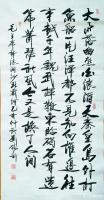 大雨落幽燕白浪滔天秦皇島外打
魚船一片汪洋都不見知向誰邊往
事越千年魏武揮鞭東臨碣石有遺
篇蕭瑟秋風今又是換了人間
毛主席詞浪淘沙北戴河